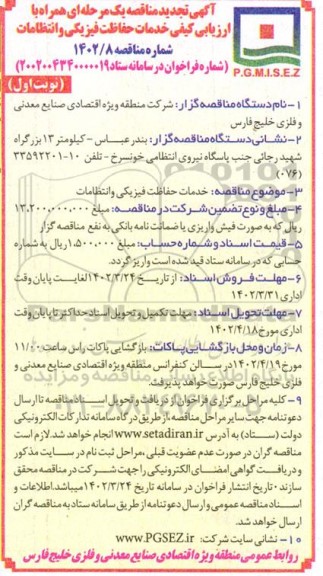 آگهی تجدید مناقصه یک مرحله‌ای همراه با
ارزیابی کیفی خدمات حفاظت فیزیکی و انتظامات
شماره مناقصه ۱۴۰۲/۸
(شماره فراخوان در سامانه ستاد ۲۰۰۲۰۰۴۳۴۰۰۰۰۰۱۹)
(نوبت اول)
P.G.M.I.S.E.Z
۱- نام دستگاه مناقصه گزار: شرکت منطقه ویژه اقتصادی صنایع معدنی
و فلزی خلیج فارس
۲- نشانی دستگاه مناقصه گزار: بندرعباس - کیلومتر ۱۳ بزرگراه
شهید رجائی جنب پاسگاه نیروی انتظامی خونسرخ - تلفن ۱۰-۳۳۵۹۲۲۰۱
(۰۷۶)
۳- موضوع مناقصه: خدمات حفاظت فیزیکی وانتظامات
۴- مبلغ و نوع تضمین شرکت در مناقصه: مبلغ ۱۳,۲۰۰,۰۰۰,۰۰۰
ریال که به صورت فیش واریزی یا ضمانت نامه بانکی به نفع مناقصه گزار
۵- قیمت اسناد و شماره حساب: مبلغ ۱,۵۰۰,۰۰۰ ریال به شماره
حسابی که در سامانه ستاد قید شده است واریز گردد.
۶- مهلت فروش اسناد: از تاریخ ۱۴۰۲/۳/۲۴ لغایت پایان وقت
اداری ۱۴۰۲/۳/۳۱
۷- مهلت تحویل اسناد: مهلت تکمیل و تحویل اسناد حداکثر تا پایان وقت
اداری مورخ ۱۴۰۲/۴/۱۸
۸- زمان و محل بازگشایی پاکات: بازگشایی پاکات راس ساعت ۱۱/۰۰
مورخ ۱۴۰۲/۴/۱۹ در سالن کنفرانس منطقه ویژه اقتصادی صنایع معدنی و
فلزی خلیج فارس صورت خواهد پذیرفت.
۹- کلیه مراحل برگزاری فراخوان از دریافت و تحویل اسناد مناقصه تا ارسال
دعوتنامه جهت سایر مراحل مناقصه از طریق درگاه سامانه تدارکات الکترونیکی
دولت (ستاد) به آدرس www.setadiran.ir انجام خواهد شد. لازم است
مناقصه گران در صورت عدم عضویت قبلی، مراحل ثبت نام در سایت مذکور
و دریافت گواهی امضای الکترونیکی را جهت شرکت در مناقصه محقق
سازند. تاریخ انتشار فراخوان در سامانه تاریخ ۱۴۰۲/۳/۲۴ میباشد. اطلاعات و
اسناد مناقصه عمومی و ارسال دعوتنامه از طریق سامانه ستاد به مناقصه گران
ارسال خواهد شد.
۱۰- نشانی سایت شرکت: www.PGSEZ.ir
روابط عمومی منطقه ویژه اقتصادی صنایع معدنی و فلزی خلیج فارس